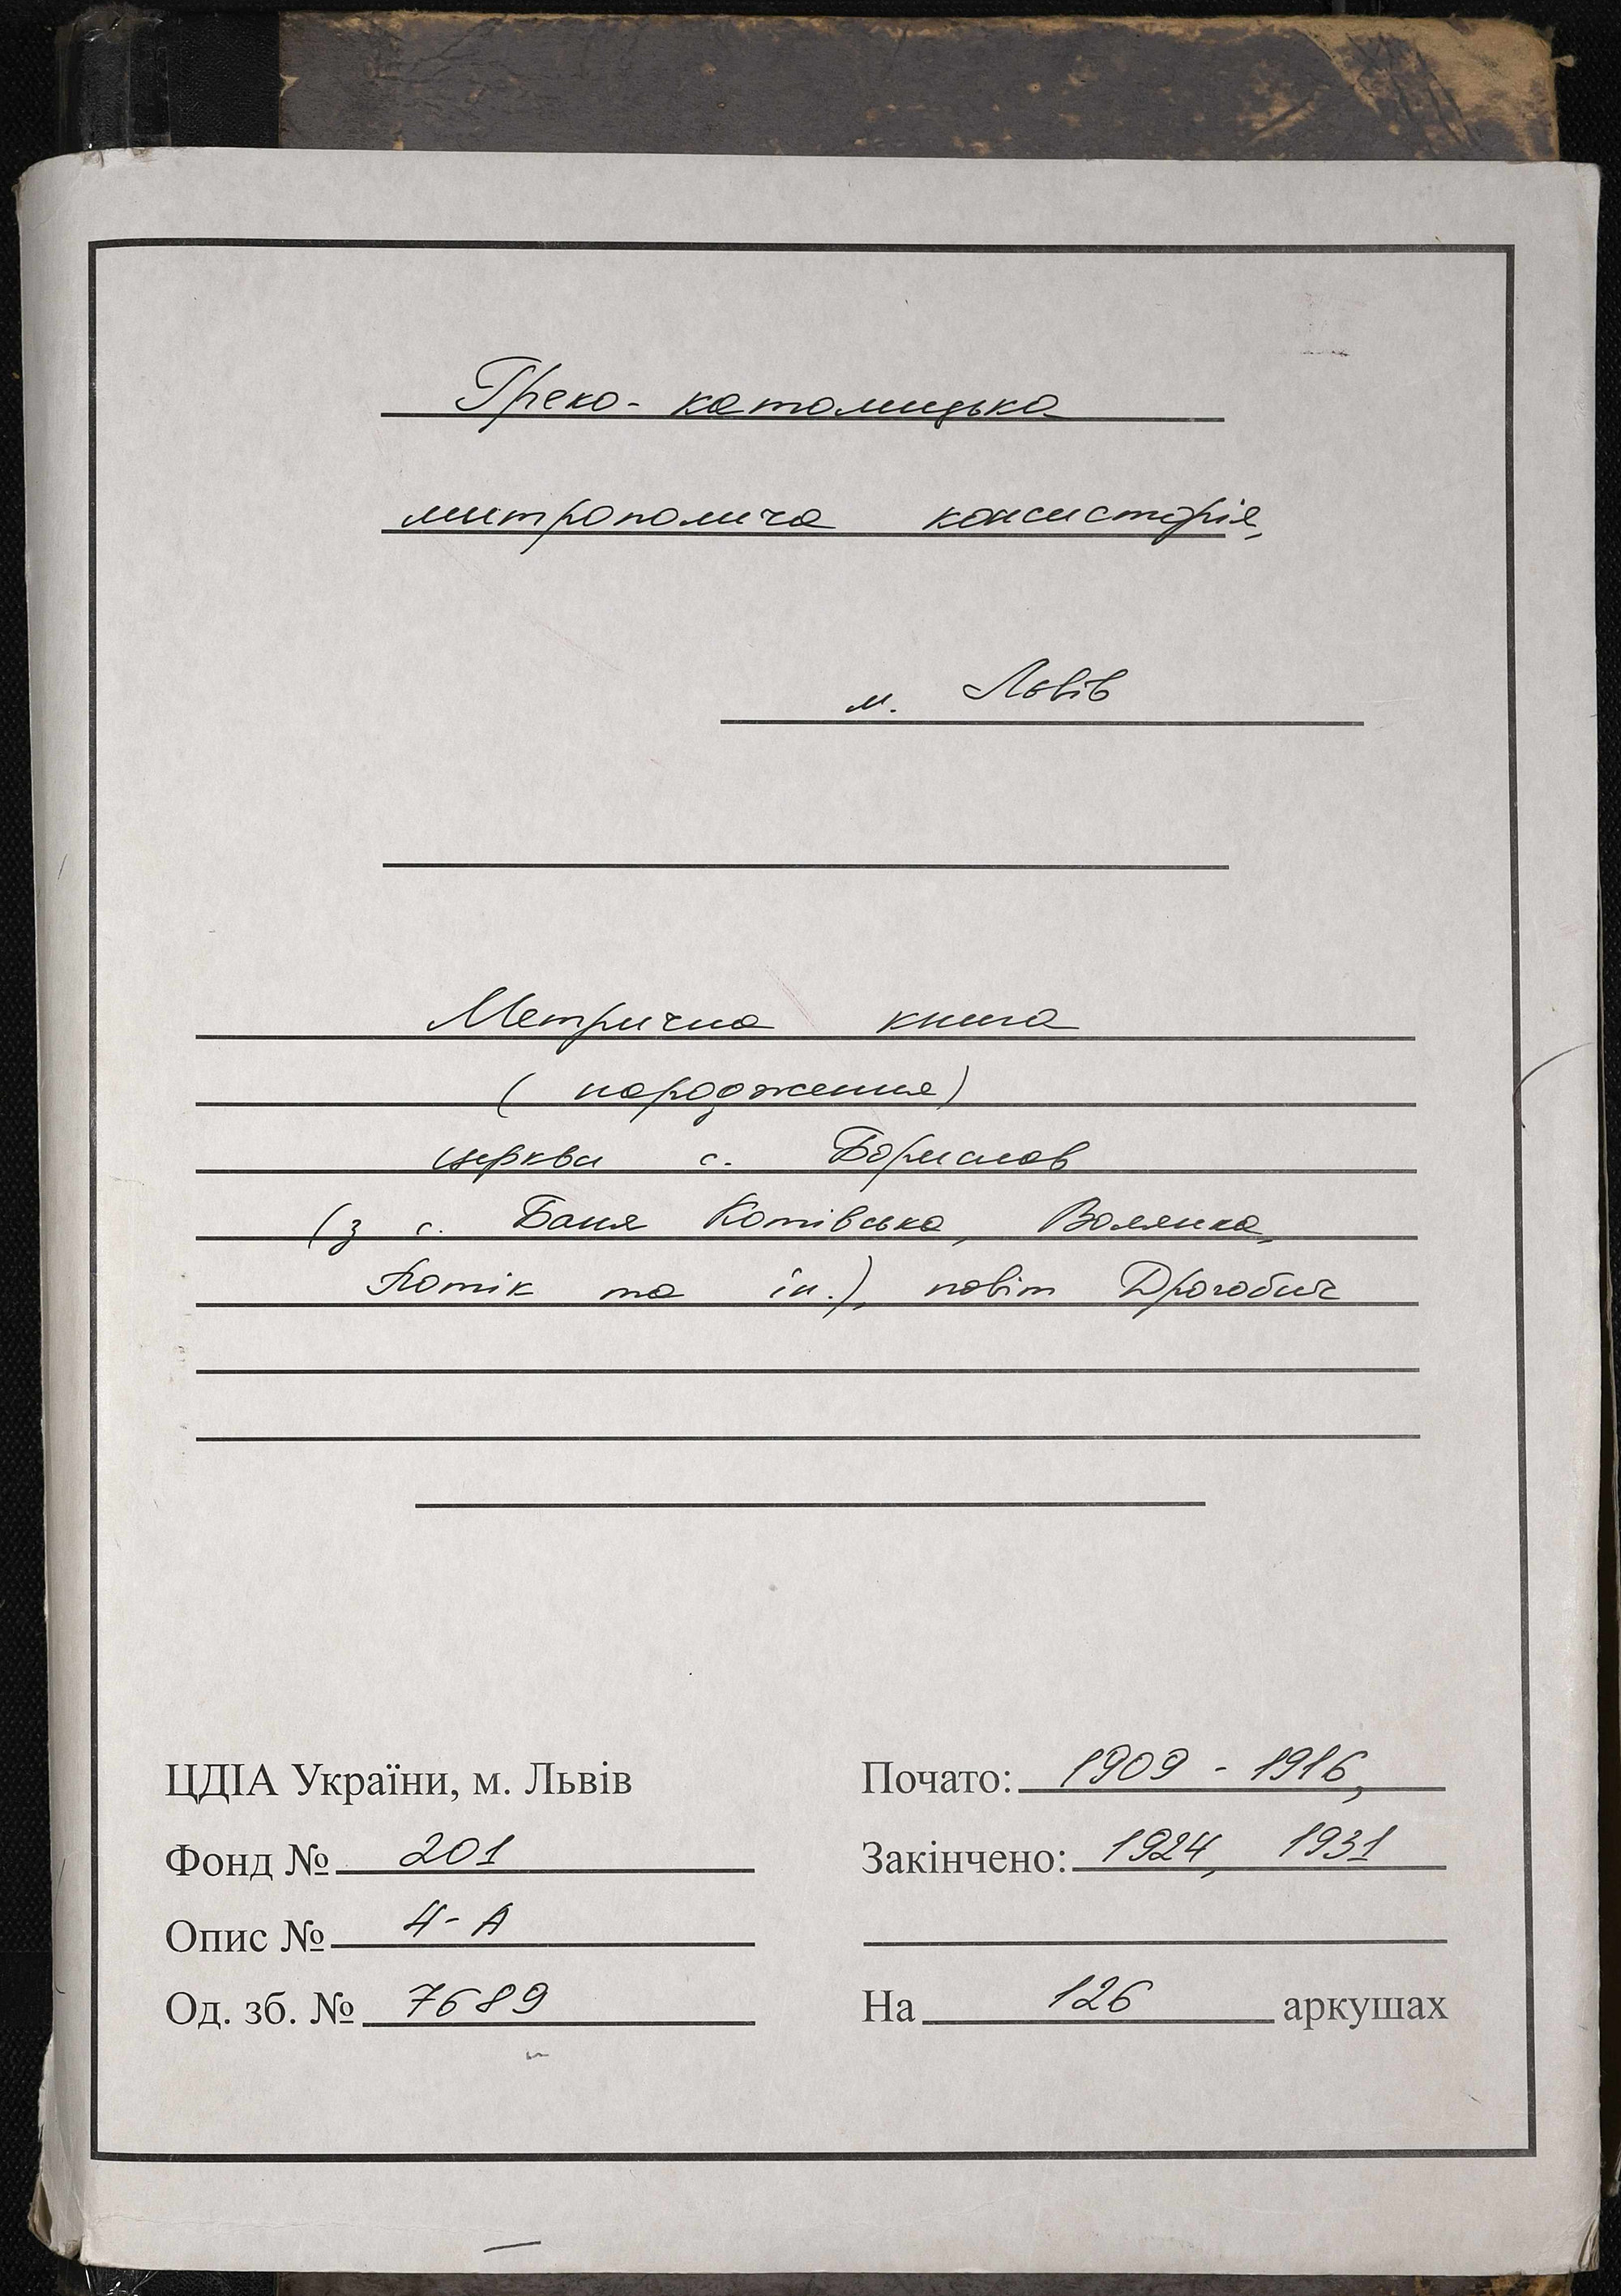 Греко-католицька
митрополича консисторія,
м. Львів
Метрична книга
(народження)
церкви с. Борислав
(з с. Баня Котівська, Волянка,
Потік та ін.), повіт Дрогобич
ЦДІА України, м. Львів
Фонд № 201
Опис № 4-А
Од. зб. № 7689
Почато: 1909 - 1916,
Закінчено: 1924, 1931
На 126 аркушах